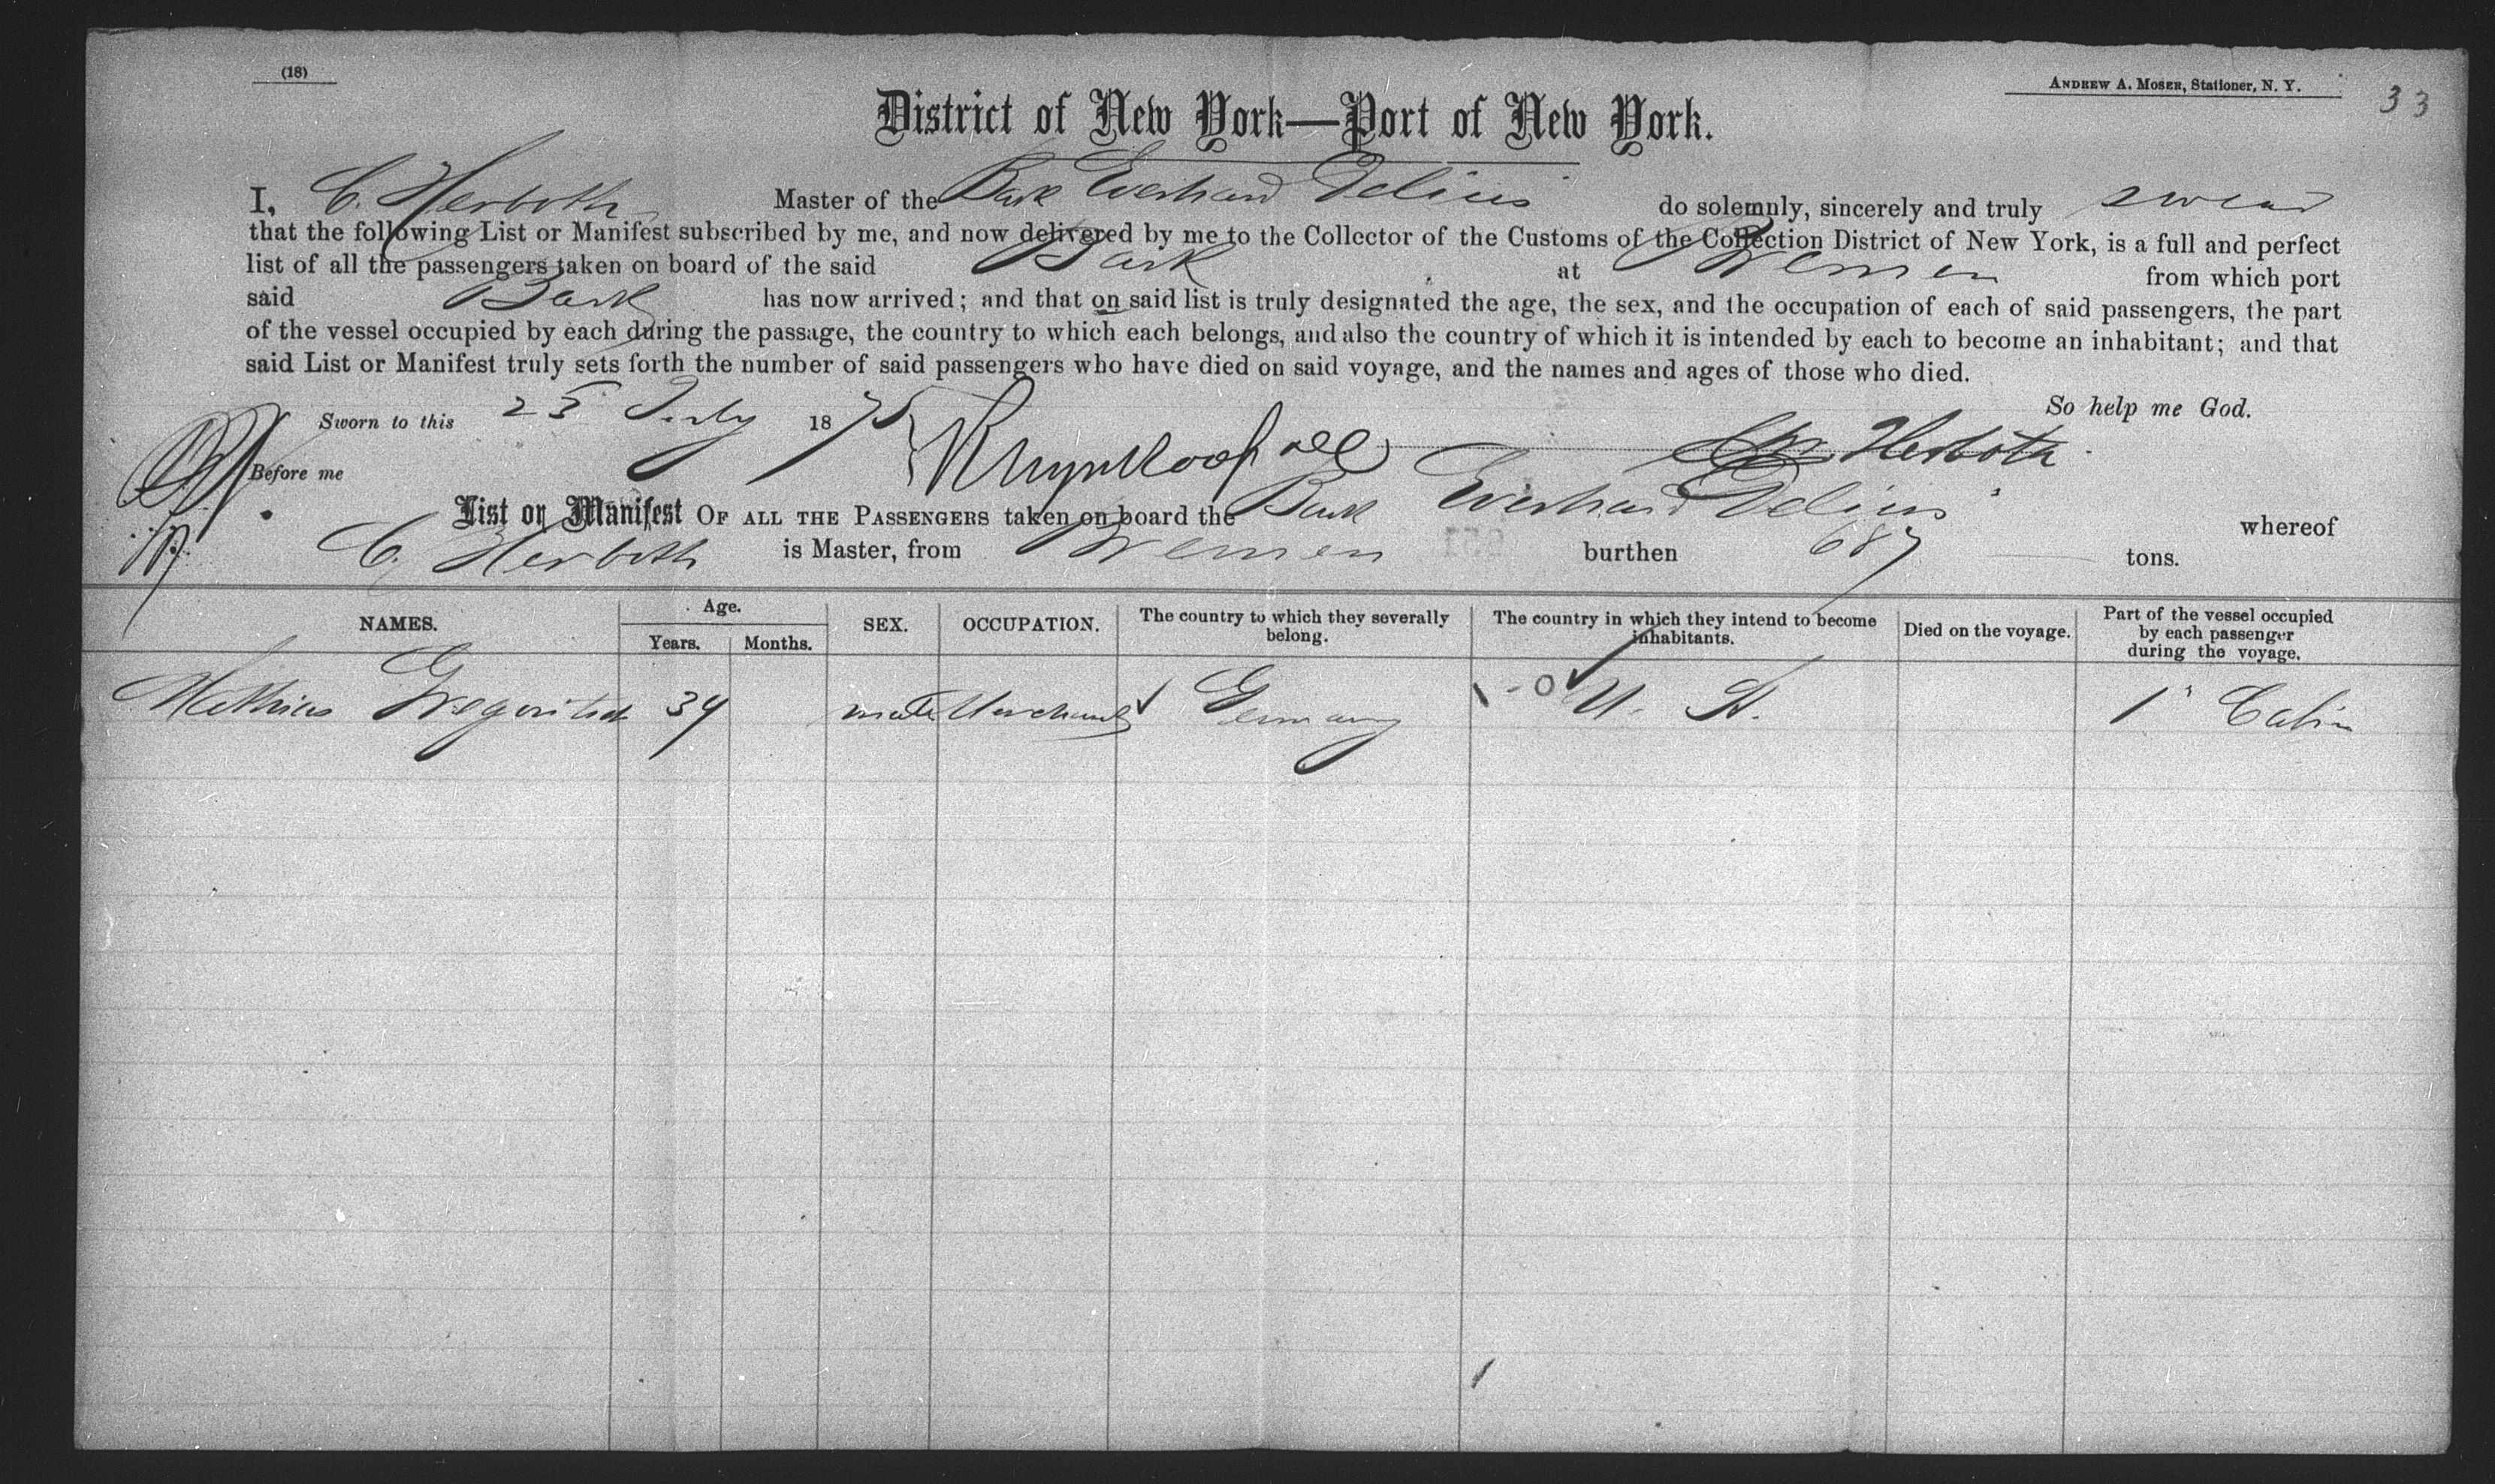 (18)
ANDREW A. MOSER, Stationer, N. Y.
33
District of New York—Port of New York.
I, C. Herboth Master of the Bark Everhard Delius do solemnly, sincerely and truly swear
that the following List or Manifest subscribed by me, and now delivered by me to the Collector of the Customs of the Collection District of New York, is a full and perfect
list of all the passengers taken on board of the said Bark at Bremen from which port
said Bark has now arrived; and that on said list is truly designated the age, the sex, and the occupation of each of said passengers, the part
of the vessel occupied by each during the passage, the country to which each belongs, and also the country of which it is intended by each to become an inhabitant; and that
said List or Manifest truly sets forth the number of said passengers who have died on said voyage, and the names and ages of those who died.
So help me God.
Sworn to this 25 July 1875
Herboth
Before me
List or Manifest OF ALL THE PASSENGERS taken on board the Bark Everhard Delius whereof
C. Herboth is Master, from Bremen burthen 687 tons.
NAMES. Age. Years. Months. SEX. OCCUPATION. The country to which they severally belong. The country in which they intend to become inhabitants. Died on the voyage. Part of the vessel occupied by each passenger during the voyage.
Mathias 34 male Merchant Germany U. St. 1 Cabin
1